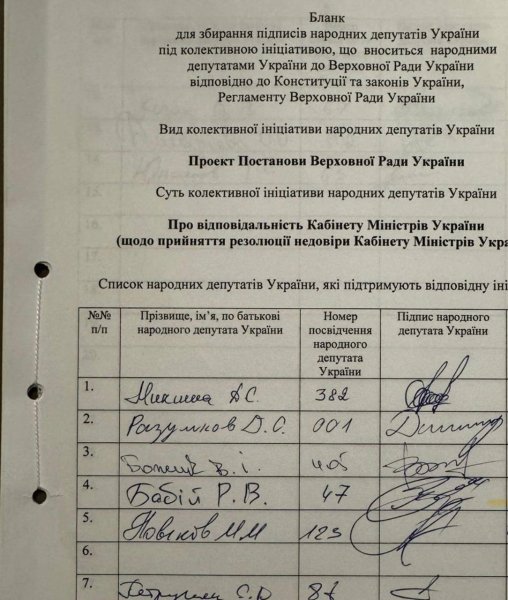 Бланк
для збирання підписів народних депутатів України
під колективною ініціативою, що вноситься народними
депутатами України до Верховної Ради України
відповідно до Конституції та законів України,
Регламенту Верховної Ради України
Вид колективної ініціативи народних депутатів України
Проект Постанови Верховної Ради України
Суть колективної ініціативи народних депутатів України
Про відповідальність Кабінету Міністрів України
(щодо прийняття резолюції недовіри Кабінету Міністрів Укра
Список народних депутатів України, які підтримують відповідну іні
№№ п/п
Прізвище, ім’я, по батькові народного депутата України
Номер посвідчення народного депутата України
Підпис народного депутата України
1. А.С. 382
2. Разумков Д.О. 001
3. В.І. 405
4. Бабій Р.В. 47
5. Новіков М М 123
6.
7.